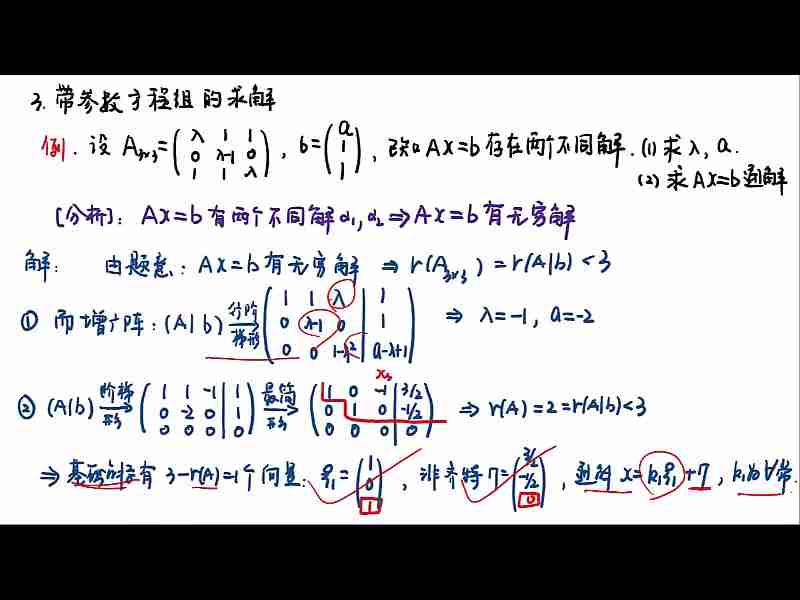 3. 带参数方程组的求解
例. 设 A₃ₓ₃=(λ 1 1; 0 λ-1 0; 1 1 λ), b=(a; 1; 1), 已知 AX=b 存在两个不同解. (1) 求 λ, a.
(2) 求 AX=b 通解
[分析]: AX=b 有两个不同解 α₁, α₂ ⇒ AX=b 有无穷解
解: 由题意: AX=b 有无穷解 ⇒ r(A₃ₓ₃) = r(A|b) < 3
① 而增广阵: (A|b) 行阶梯形→ (1 1 λ | 1; 0 λ-1 0 | 1; 0 0 1-λ² | a-λ+1) ⇒ λ=-1, a=-2
② (A|b) 阶梯形→ (1 1 -1 | 1; 0 -2 0 | 1; 0 0 0 | 0) 最简形→ (1 0 -1 | 3/2; 0 1 0 | -1/2; 0 0 0 | 0) x₃ ⇒ r(A)=2=r(A|b)<3
⇒ 基础解系有 3-r(A)=1个向量: ξ₁=(1; 0; 1), 非齐特 η=(3/2; -1/2; 0), 通解 x=k₁ξ₁+η, k₁为∀常